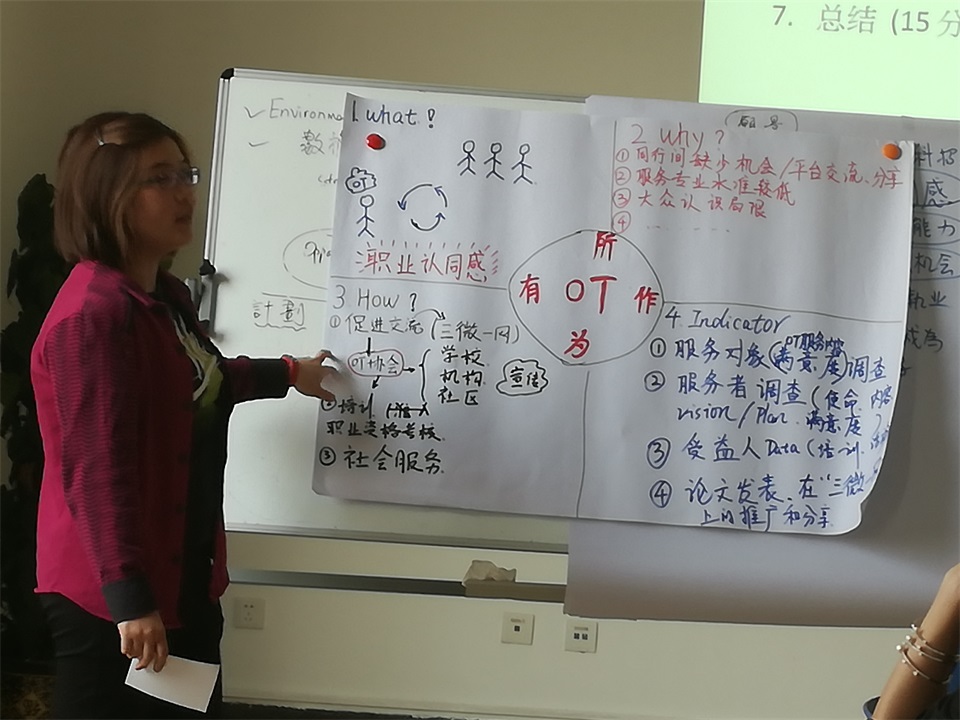 7. 总结 (15分
Environme
1. what!
职业认同感
2 why?
① 同行间缺少机会/平台交流、分享
② 服务专业水准较低
③ 大众认识局限
④ ......
所
有 OT 作
为
3 How?
① 促进交流 (三微一网)
OT协会
学校
机构
社区
宣传
② 培训
职业资格考核
③ 社会服务
4. Indicator
① 服务对象(满意度)调查
OT服务
② 服务者调查(使命、内容
vision/Plan 满意度)
③ 受益人Data (培训、
④ 论文发表、在"三微一
上的推广和分享
計劃
感
能力
机会
执业
成為